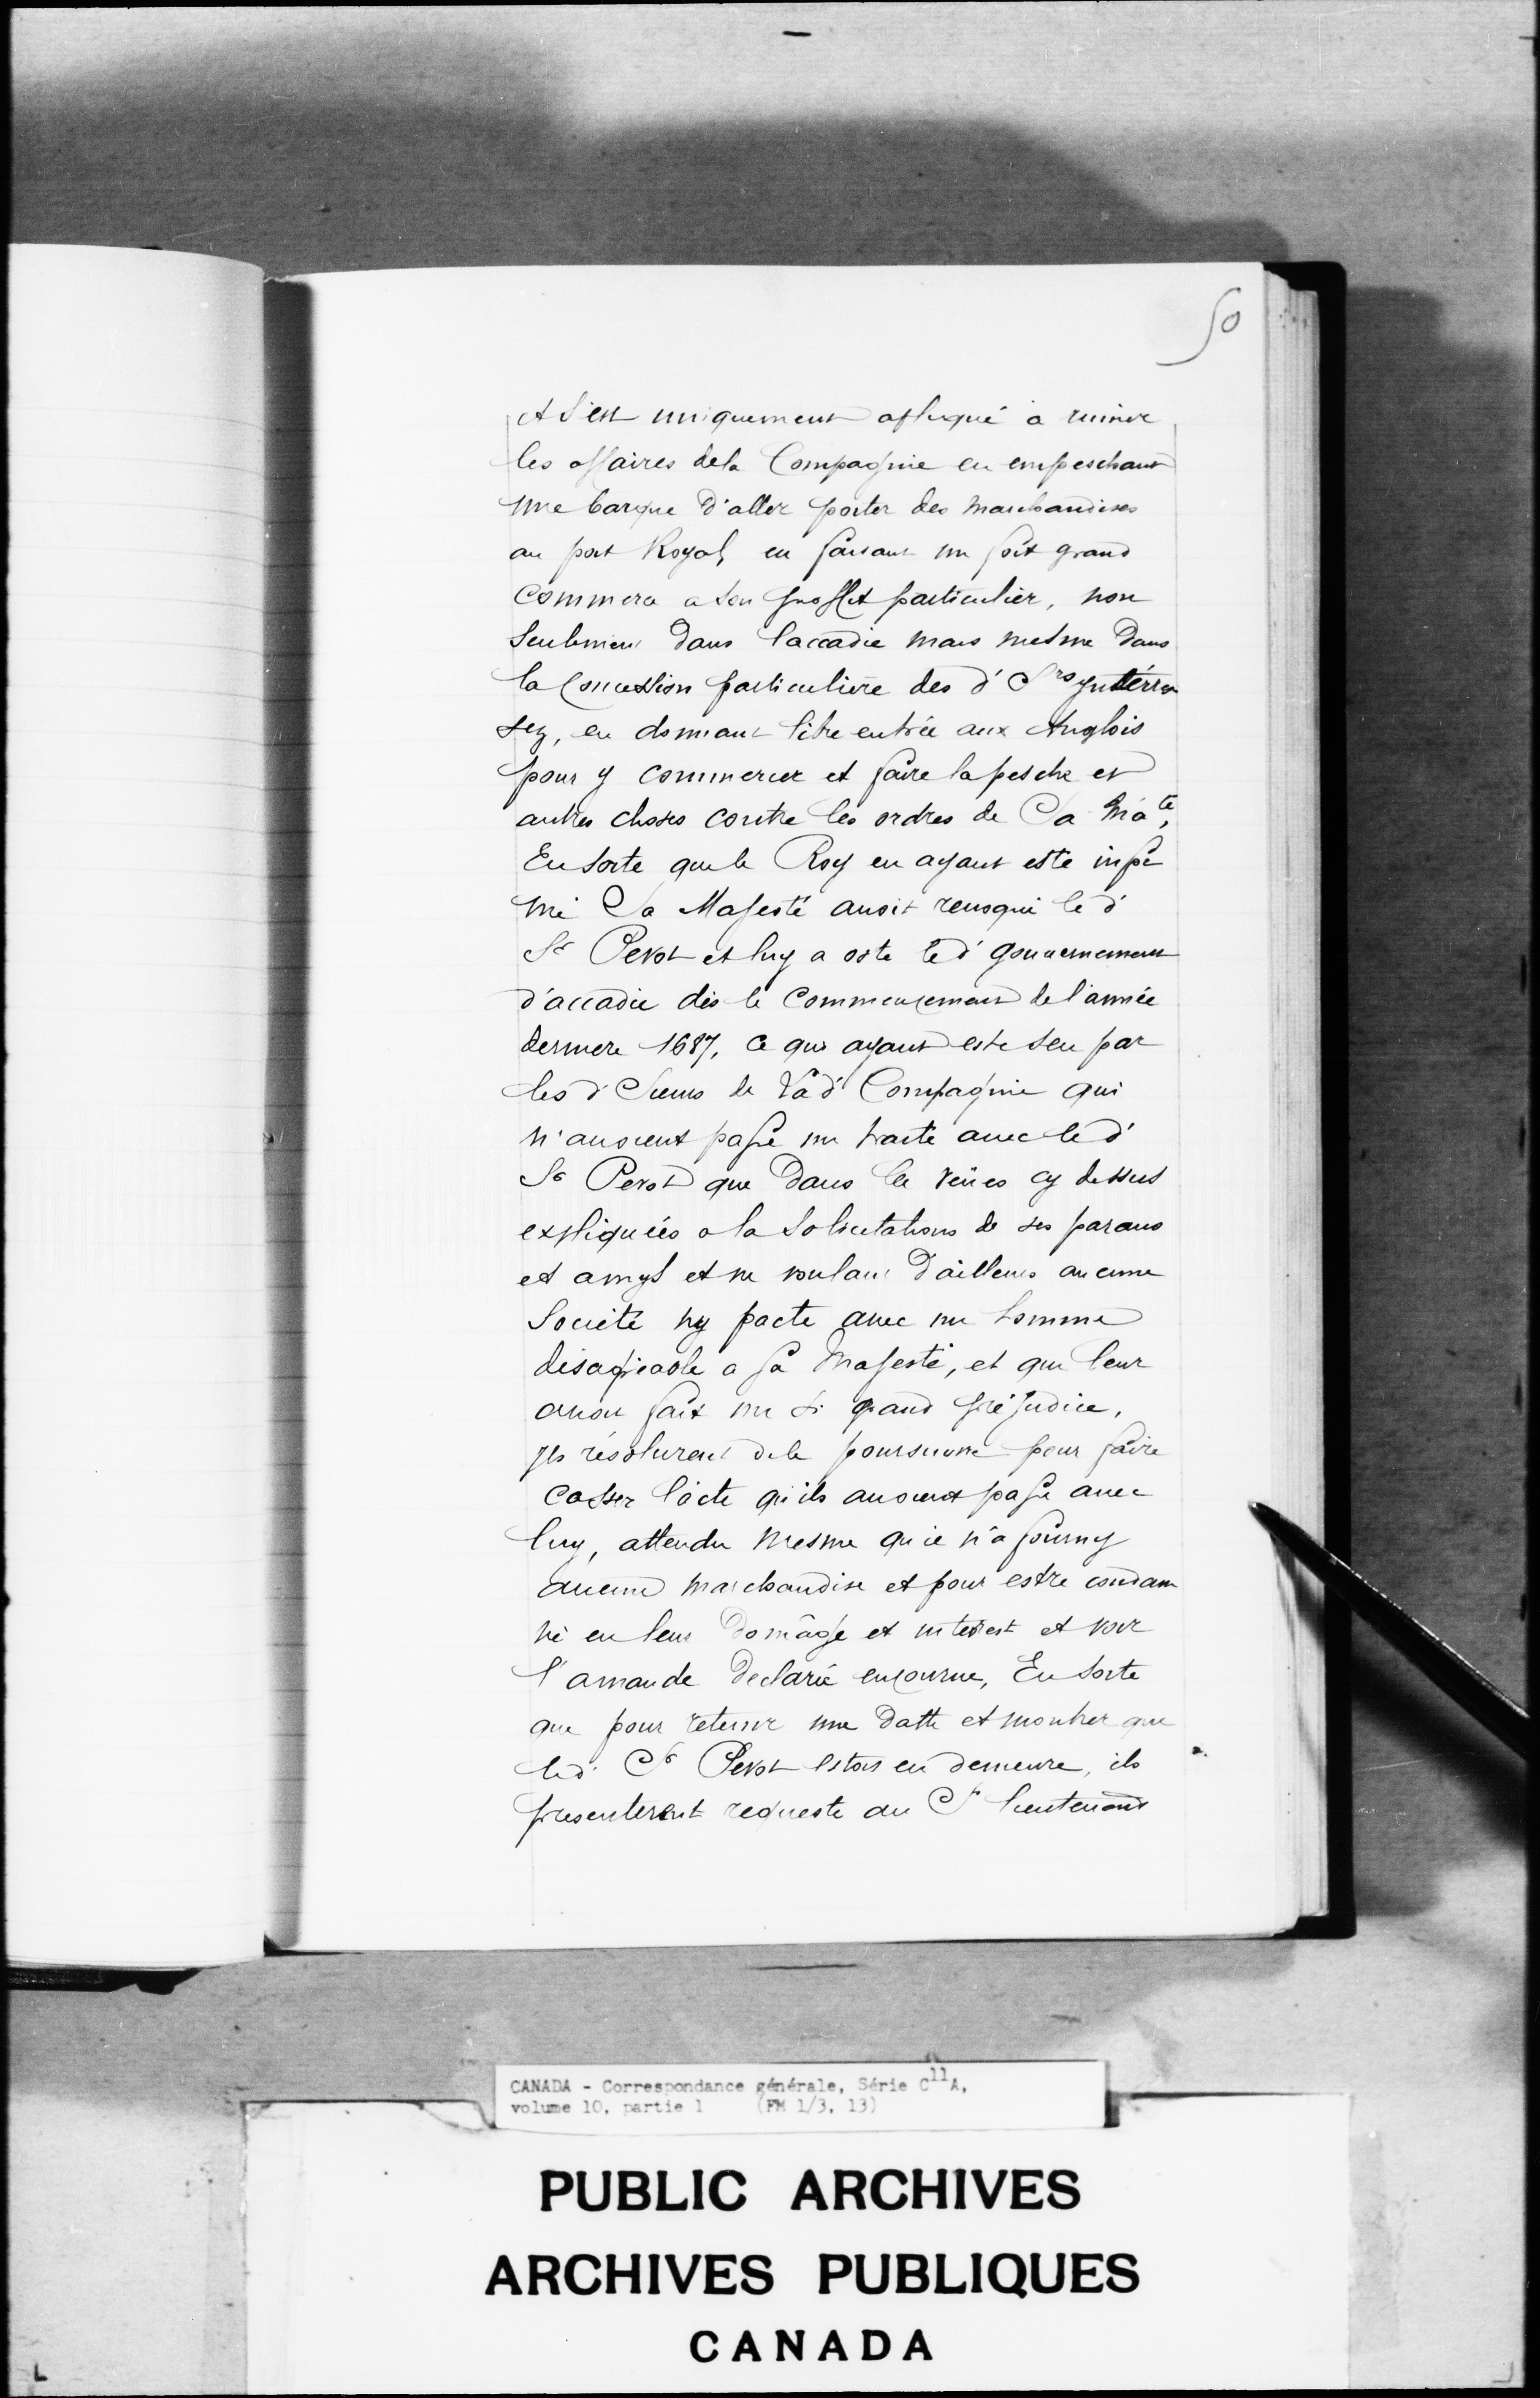 50
et s'est uniquement apliqué a ruiner
les affaires dela Compagnie en empeschant
une barque d'aller porter des marchandises
au port Royal, en faisant un fort grand
commerce a son proffit particulier, non
seulement dans laccadie mais mesme dans
la Concession particulière des d' Srs ynterres
sez, en donnant libre entrée aux Anglois
pour y commercer et faire la pesche et
autres choses contre les ordres de Sa Maté,
En sorte que le Roy en ayant esté infor
mé Sa Majesté auoit reuoqué le d'
Sr Perot et luy a osté le d' gouuernement
d'accadie dès le commencement de l'année
derniere 1687, ce qui ayant esté seu par
les d' Sieurs de la d' Compagnie qui
n'auoient passé un traité auec le d'
Sr Perot que dans les veües cy dessus
expliquées a la solicitations de ses parans
et amys et ne voulant d'ailleurs aucune
Société ny pacte auec un homme
désagréable a sa Majesté, et qui leur
auoit fait un si grand préjudice,
Ils résolurent de le poursuivre pour faire
casser l'acte qu'ils auoient passé auec
luy, attendu mesme qu'il n'a fourny
aucune marchandise et pour estre condam
né en leurs domâge et interest et voir
l'amande declarée encourue, En sorte
que pour retenir une datte et montrer que
le d' Sr Perot estoit en demeure, ils
presenterent requeste au Sr lieutenant
CANADA - Correspondance générale, Série C11A,
volume 10, partie 1 (FM 1/3, 13)
PUBLIC ARCHIVES
ARCHIVES PUBLIQUES
CANADA